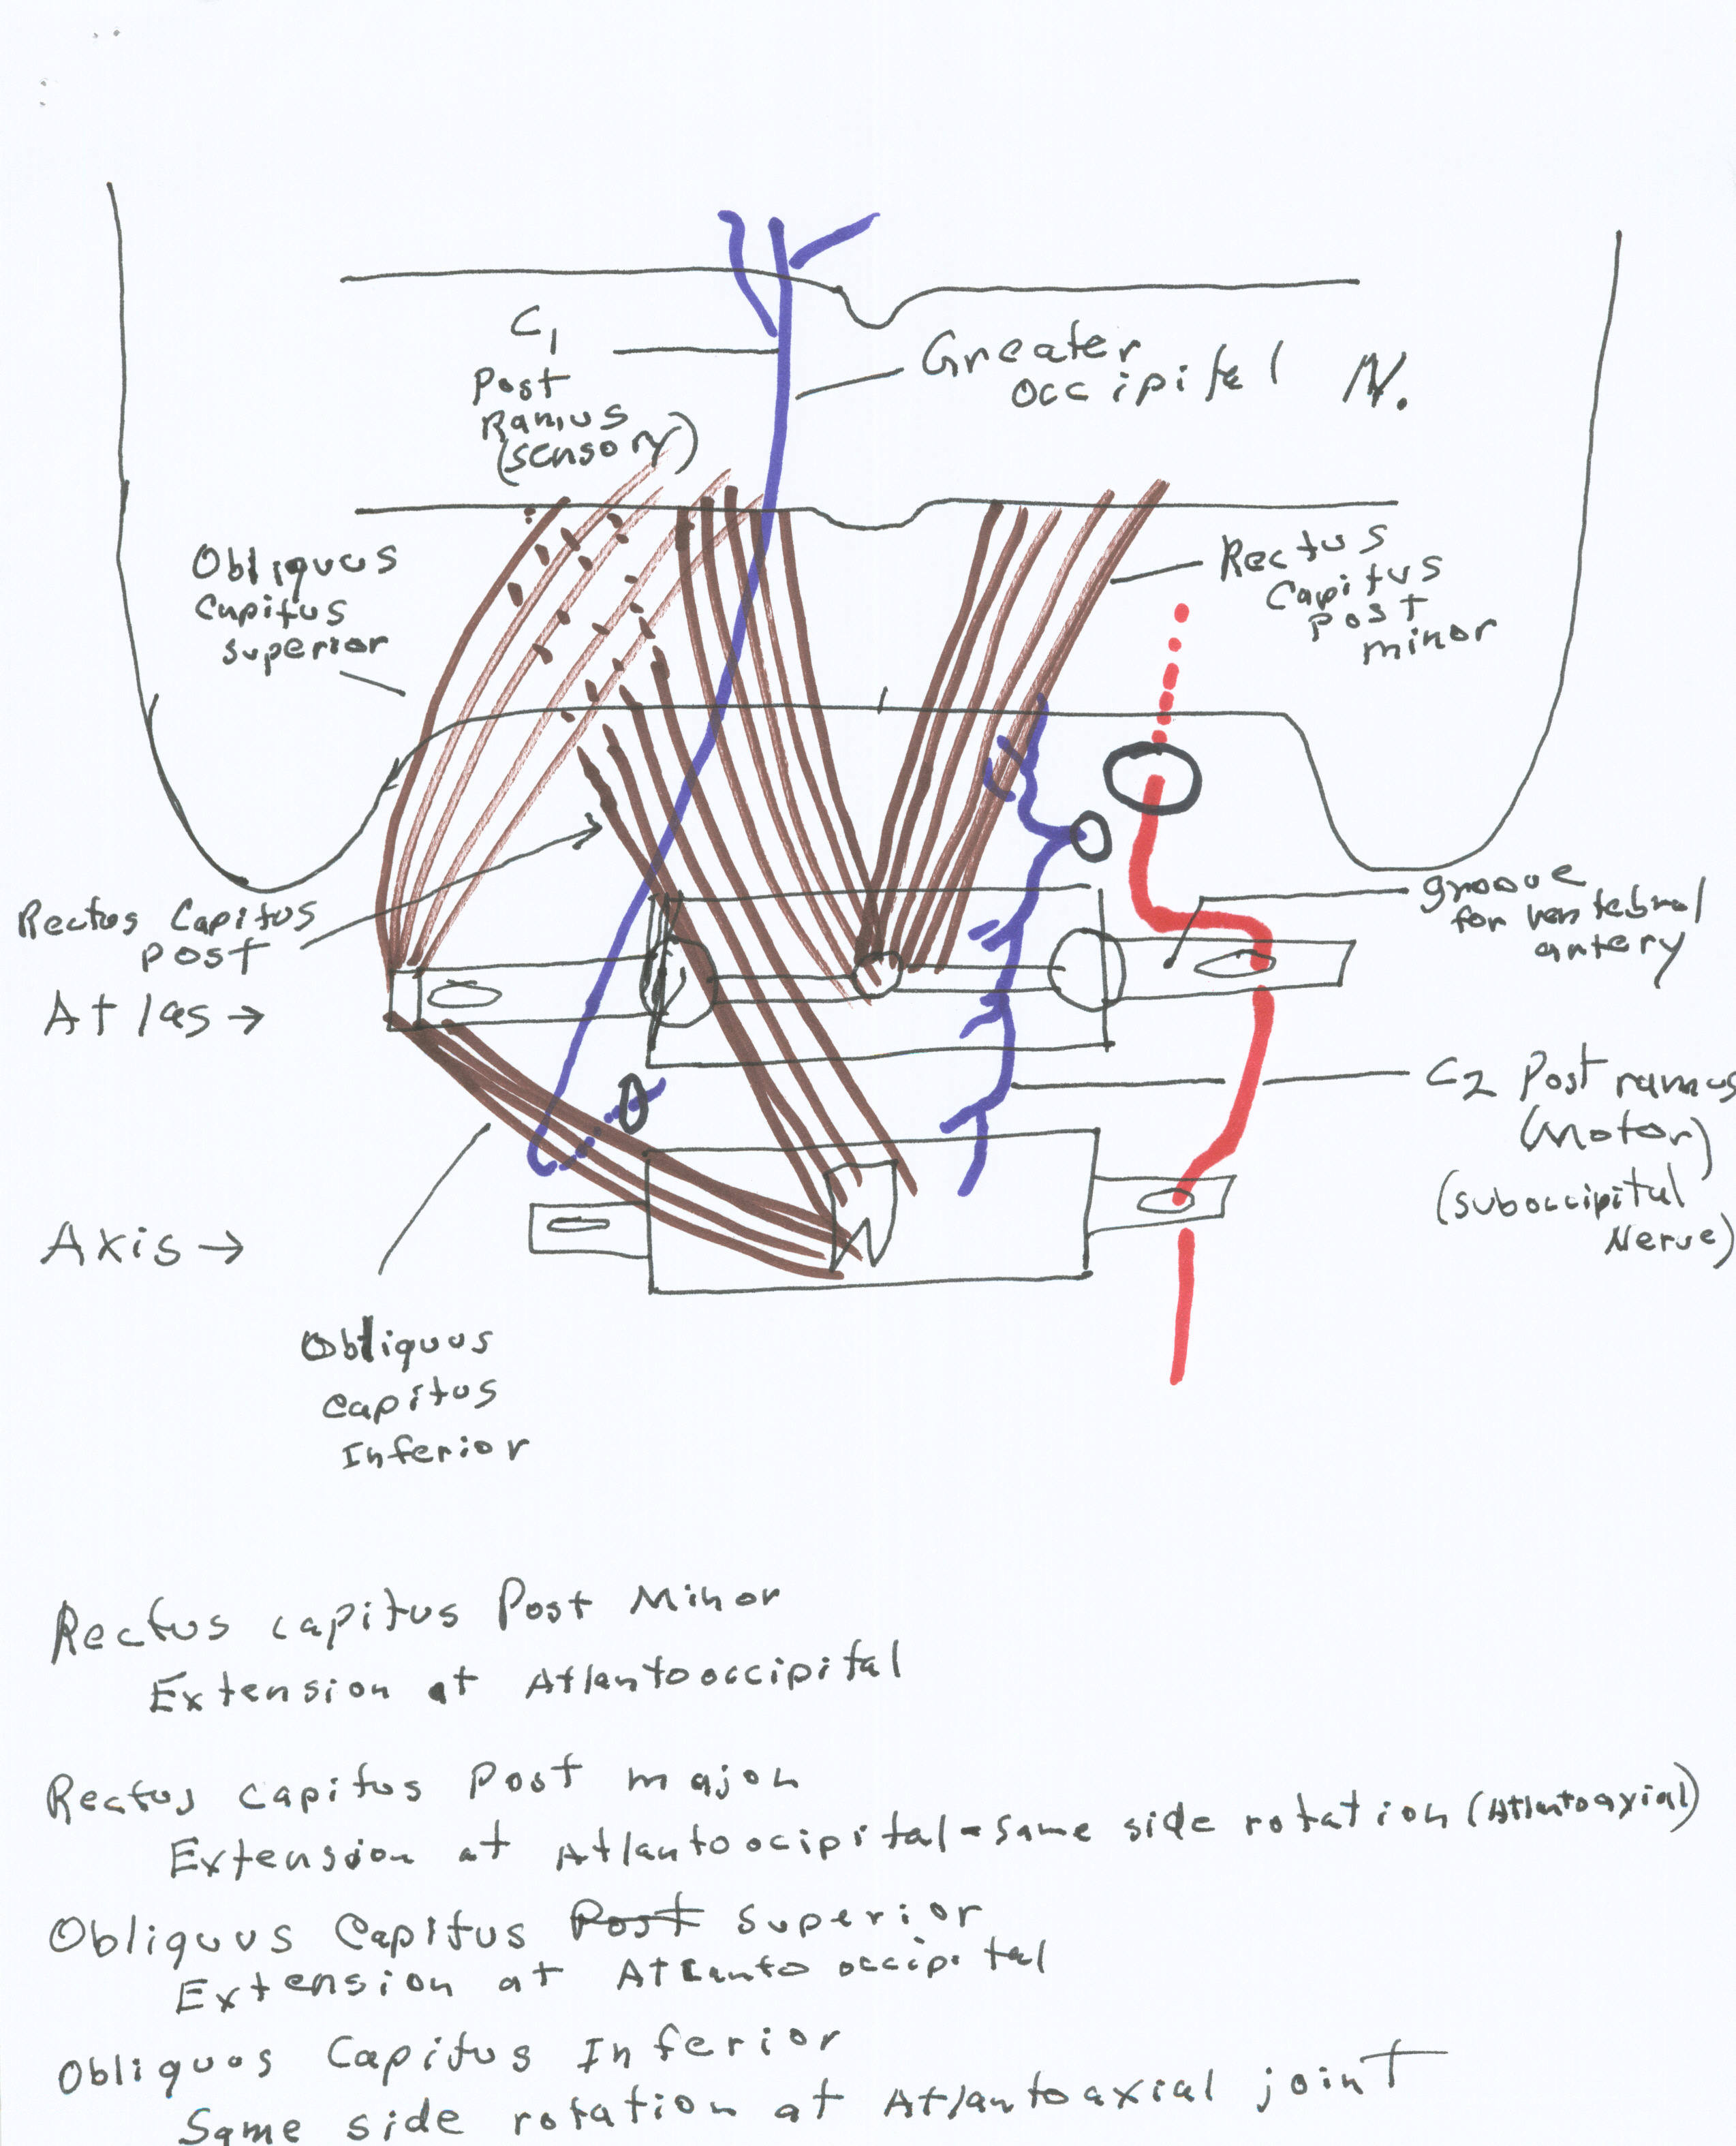 C1
Post
Ramus
(sensory)
Greater
occipital N.
Obliquus
Capitus
superior
Rectus
Capitus
Post
minor
Rectus Capitus
post
groove
for vertebral
artery
Atlas →
C2 Post ramus
(Motor)
(suboccipital
Nerve)
Axis →
Obliquus
Capitus
Inferior
Rectus capitus Post Minor
Extension at Atlantooccipital
Rectus capitus Post major
Extension at Atlantoocipital - same side rotation (Atlantoaxial)
Obliquus Capitus Post Superior
Extension at Atlanto occipital
Obliquos Capitus Inferior
Same side rotation at Atlantoaxial joint